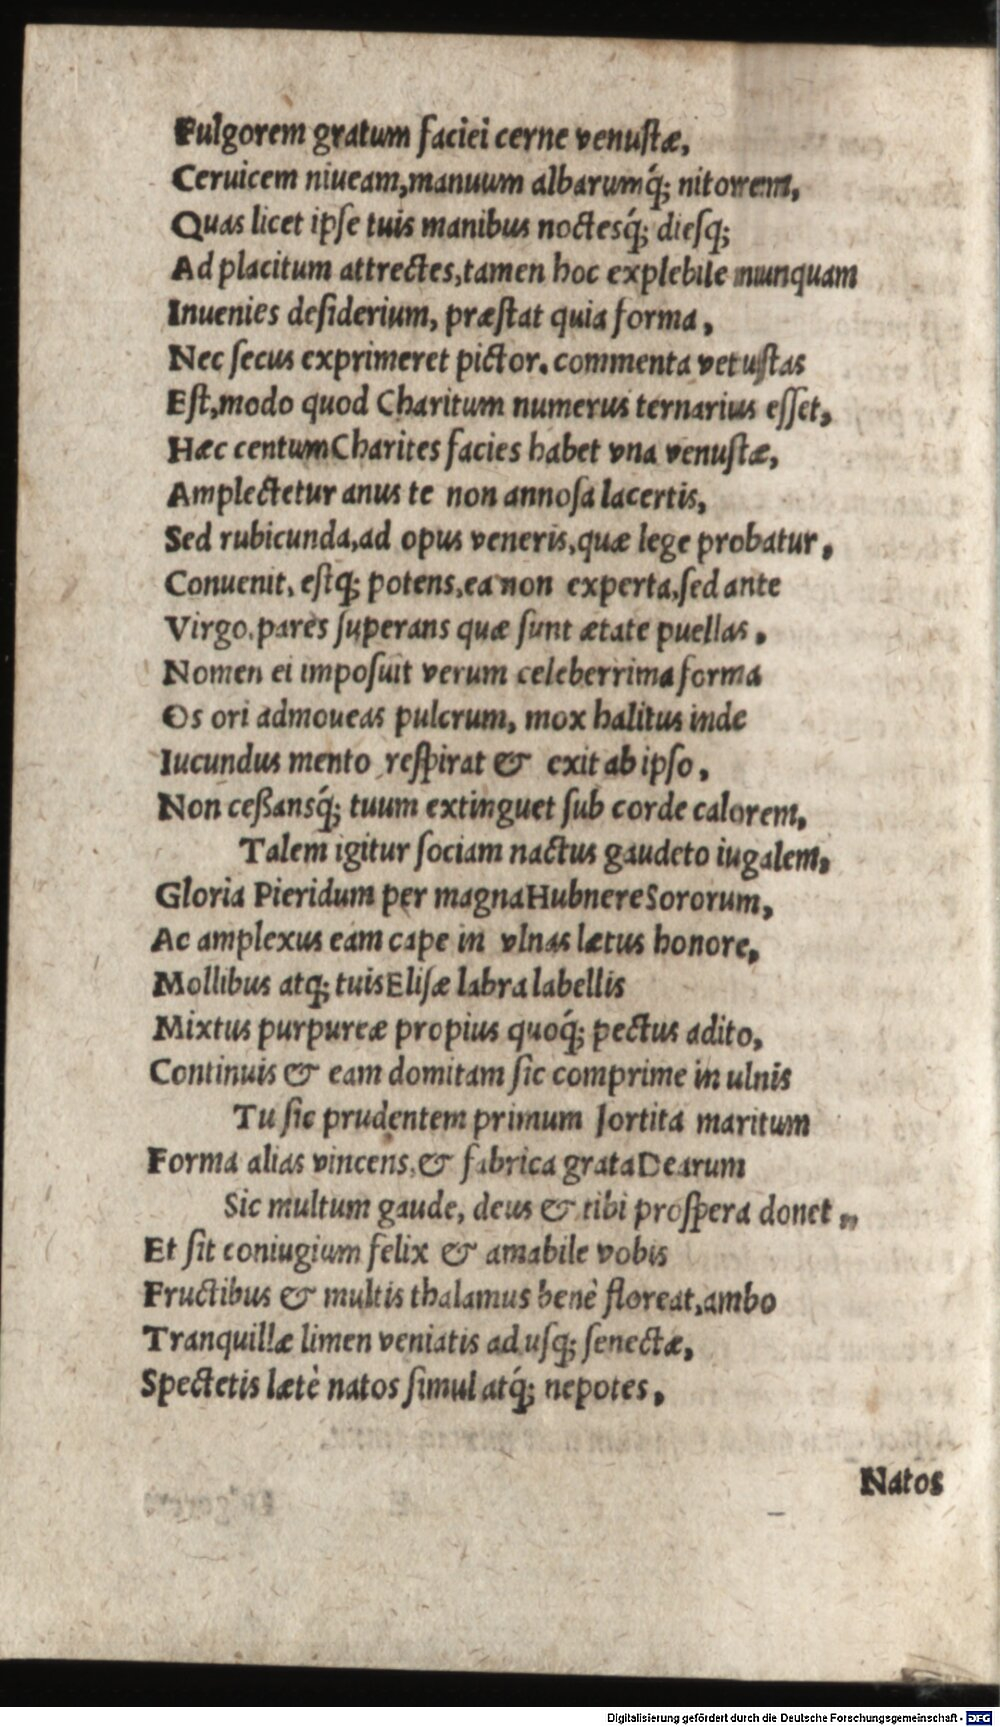 Fulgorem gratum faciei cerne venuſtæ,
Ceruicem niueam,manuum albarumq́; nitorem,
Quas licet ipſe tuis manibus noctesq́; dieſq;
Ad placitum attrectes,tamen hoc explebile nunquam
Inuenies deſiderium, præſtat quia forma,
Nec ſecus exprimeret pictor. commenta vetuſtas
Eſt,modo quod Charitum numerus ternarius eſſet,
Hæc centum Charites facies habet vna venuſtæ,
Amplectetur anus te non annoſa lacertis,
Sed rubicunda,ad opus veneris,quæ lege probatur,
Conuenit, eſtq; potens,ea non experta,ſed ante
Virgo,pares ſuperans quæ ſunt ætate puellas.
Nomen ei impoſuit verum celeberrima forma
Os ori admoueas pulcrum, mox halitus inde
Iucundus mento reſpirat & exit ab ipſo,
Non ceßansq́; tuum extinguet ſub corde calorem,
Talem igitur ſociam nactus gaudeto iugalem,
Gloria Pieridum per magna Hubnere Sororum,
Ac amplexus eam cape in vlnas lætus honore,
Mollibus atq; tuis Eliſæ labra labellis
Mixtus purpureæ propius quoq́; pectus adito,
Continuis & eam domitam ſic comprime in ulnis
Tu ſic prudentem primum ſortita maritum
Forma alias vincens,& fabrica grata Dearum
Sic multum gaude, deus & tibi proſpera donet,,
Et ſit coniugium felix & amabile vobis
Fructibus & multis thalamus benè floreat,ambo
Tranquillæ limen veniatis ad uſq; ſenectæ,
Spectetis lætè natos ſimul atq́; nepotes,
Natos
Digitalisierung gefördert durch die Deutsche Forschungsgemeinschaft - DFG